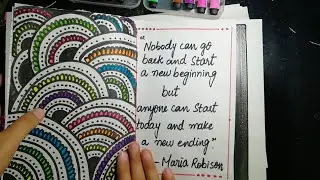 "Nobody can go
back and start
a new beginning
but
anyone can start
today and make
a new ending."
- Maria Robison